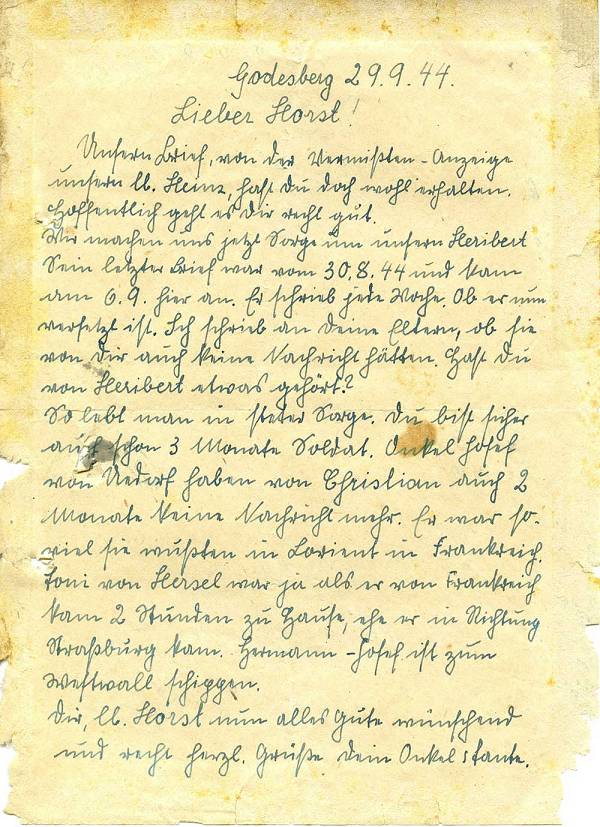 Godesberg 29.9.44.
Lieber Horst!
Unsern Brief, von der Vermißten-Anzeige
unsern lb. Heinz, hast Du doch wohl erhalten.
Hoffentlich geht es Dir recht gut.
Wir machen uns jetzt Sorge um unsern Heribert
Sein letzter Brief war vom 30.8.44 und kam
am 6.9. hier an. Er schrieb jede Woche. Ob er nun
versetzt ist. Ich schrieb an Deine Eltern, ob sie
von Dir auch keine Nachricht hätten. Hast Du
von Heribert etwas gehört?
So lebt man in steter Sorge. Du bist sicher
auch schon 3 Monate Soldat. Onkel Josef
von Uedorf haben von Christian auch 2
Monate keine Nachricht mehr. Er war so-
viel sie wußten in Lorient in Frankreich.
Toni von Hersel war ja als er von Frankreich
kam 2 Stunden zu Hause, ehe er in Richtung
Straßburg kam. Hermann-Josef ist zum
Westwall schippen.
Dir, lb. Horst nun alles Gute wünschend
und recht herzl. Grüße Dein Onkel u Tante.